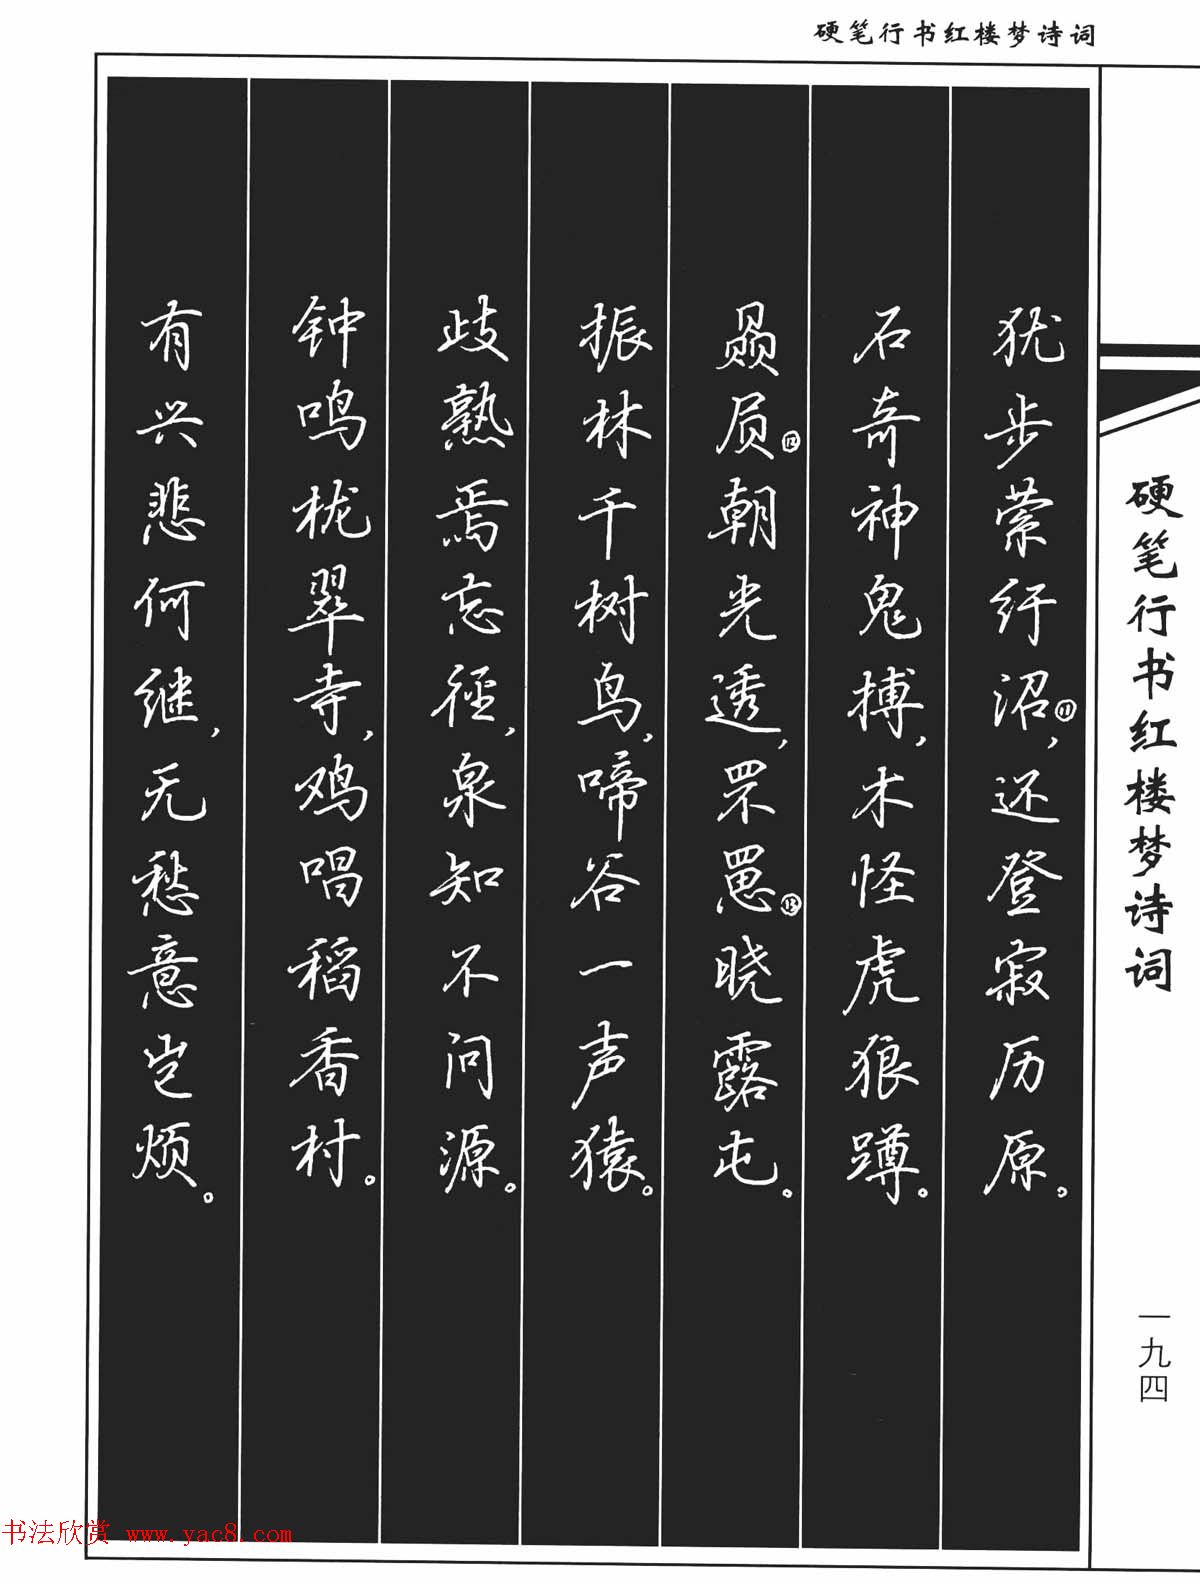 硬笔行书红楼梦诗词
犹步萦纡沼⑪，还登寂历原。
石奇神鬼搏，木怪虎狼蹲。
赑屃⑫朝光透，罘罳⑬晓露屯。
振林千树鸟，啼谷一声猿。
歧熟焉忘径，泉知不问源。
钟鸣栊翠寺，鸡唱稻香村。
有兴悲何继，无愁意岂烦。
硬笔行书红楼梦诗词
一九四
书法欣赏 www.yac8.com